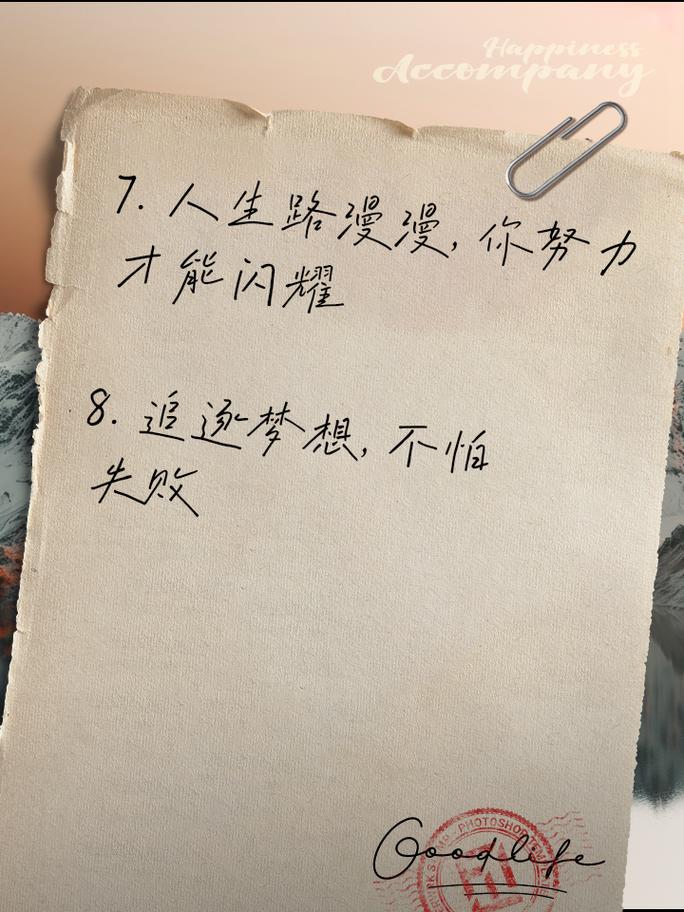 Happiness
Accompany
7. 人生路漫漫, 你努力
才能闪耀
8. 追逐梦想, 不怕
失败
PHOTOSHOP
Goodlife